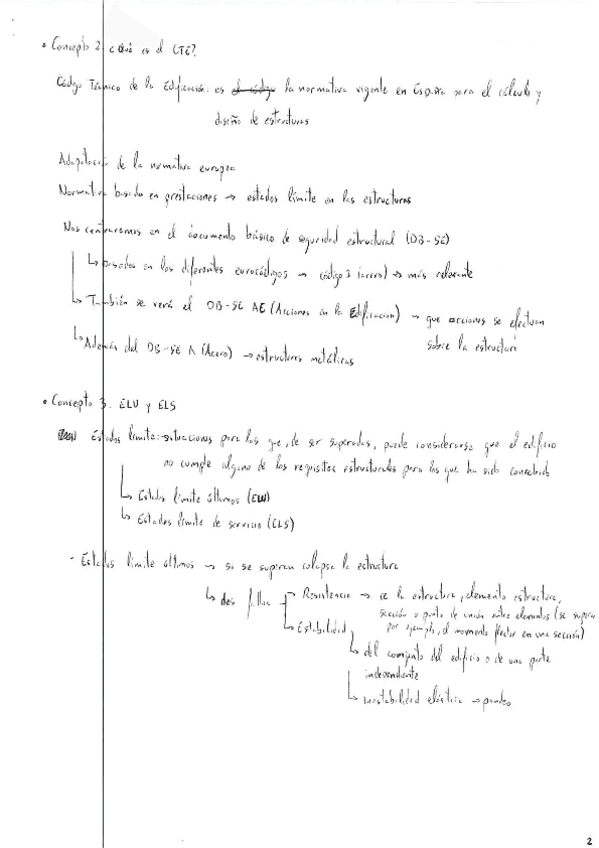 • Concepto 2. ¿Qué es el CTE?
Código Técnico de la Edificación: es el código la normativa vigente en España para el cálculo y
diseño de estructuras
Adaptación de la normativa europea
Normativa basada en prestaciones → estados límite en las estructuras
Nos centraremos en el documento básico de seguridad estructural (DB-SE)
↳ basados en los diferentes eurocódigos → código 3 (acero) → más relevante
↳ También se verá el DB-SE AE (Acciones en la Edificación) → que acciones se efectuan
sobre la estructura
↳ Además del DB-SE A (Acero) → estructuras metálicas
• Concepto 3. ELU y ELS
Estados límite: situaciones para las que, de ser superadas, puede considerarse que el edificio
no cumple alguno de los requisitos estructurales para los que ha sido concebido
↳ Estados límite últimos (ELU)
↳ Estados límite de servicio (ELS)
- Estados límite últimos → si se superan colapsa la estructura
↳ dos fallos
Resistencia → de la estructura, elemento estructura,
sección o punto de unión entre elementos (se supera
por ejemplo, el momento flector en una sección)
Estabilidad
↳ del conjunto del edificio o de una parte
independiente
↳ inestabilidad elástica → pandeo
2